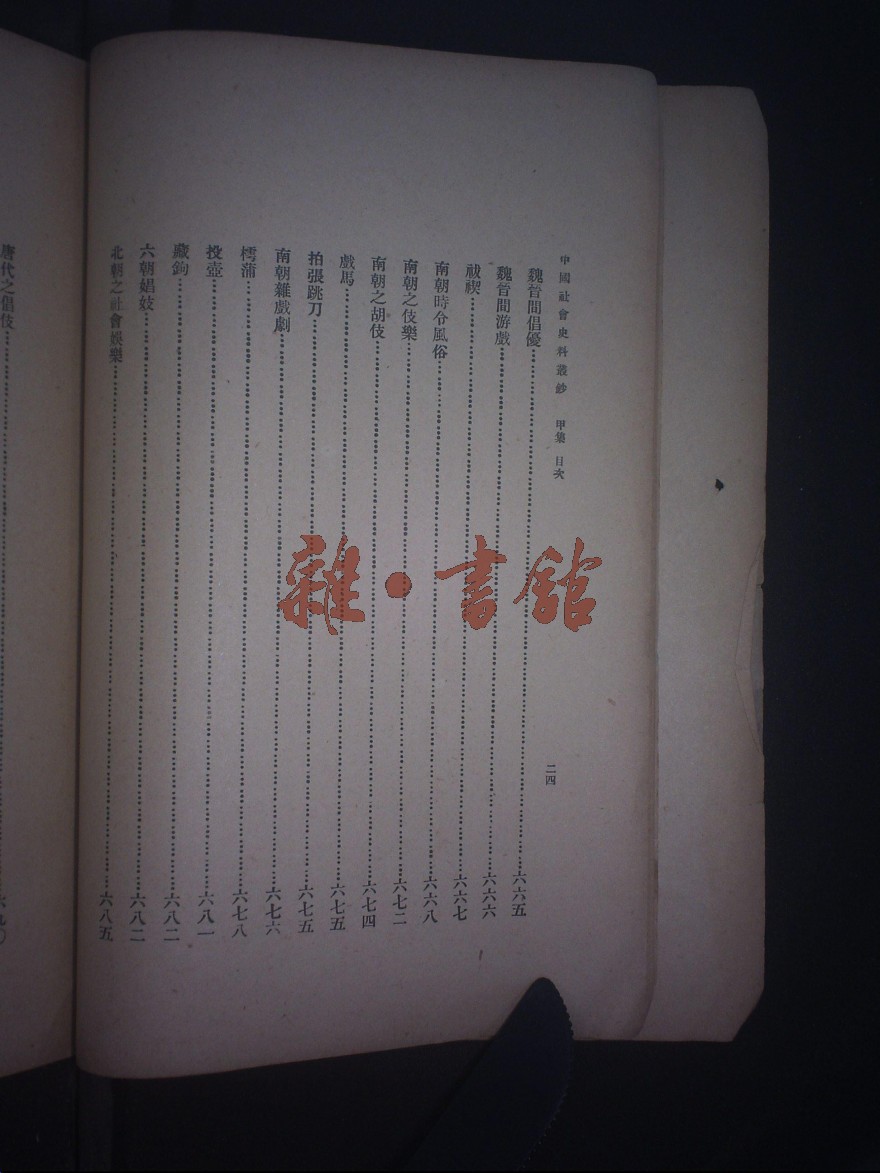 中國社會史料叢鈔 甲集 目次 二四
魏晉間倡優……六六五
魏晉間游戲……六六六
祓禊……六六七
南朝時令風俗……六六八
南朝之伎樂……六七二
南朝之胡伎……六七四
戲馬……六七五
拍張跳刀……六七五
南朝雜戲劇……六七六
樗蒲……六七八
投壺……六八一
藏鉤……六八二
六朝娼妓……六八二
北朝之社會娛樂……六八五
唐代之倡伎……六九〇
雜·書館